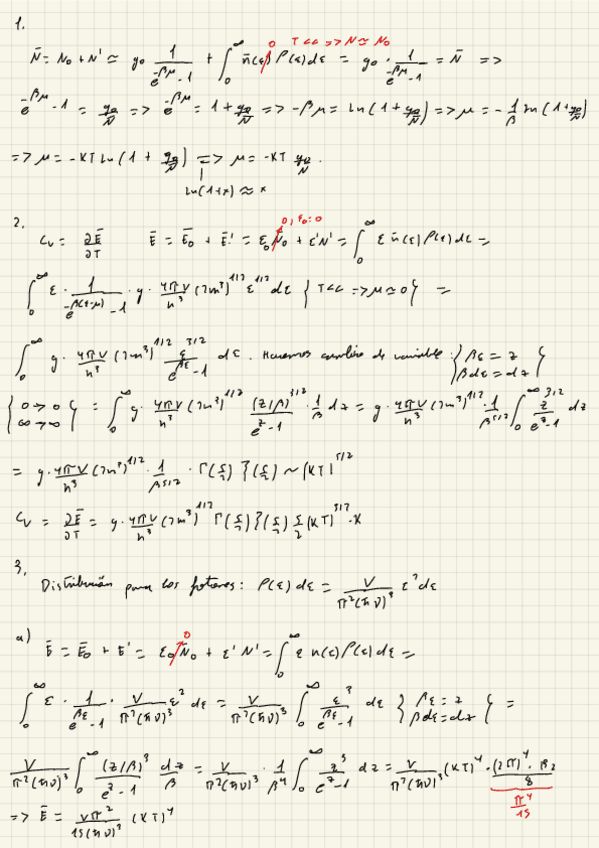 1.
0 T<< => N ≃ N₀
N̄ = N₀ + N' ≃ g₀ 1/(e^{-βμ} - 1) + ∫₀^∞ n̄(ε) ρ(ε) dε = g₀ · 1/(e^{-βμ} - 1) = N̄ =>
e^{-βμ} - 1 = g₀/N̄ => e^{-βμ} = 1 + g₀/N̄ => -βμ = ln(1 + g₀/N̄) => μ = -1/β ln(1 + g₀/N̄)
=> μ = -KT ln(1 + g₀/N̄) => μ = -KT g₀/N̄.
ln(1+x) ≈ x
2.
0, ε₀=0
C_V = ∂Ē/∂T Ē = Ē₀ + Ē' = ε₀N₀ + ε'N' = ∫₀^∞ ε n̄(ε) ρ(ε) dε =
∫₀^∞ ε · 1/(e^{-β(ε-μ)} - 1) · g · 4πV/h³ (2m³)^{1/2} ε^{1/2} dε { T<< => μ ≃ 0 } =
∫₀^∞ g · 4πV/h³ (2m³)^{1/2} ε^{3/2}/(e^{βε} - 1) dε. Hacemos cambio de variable: { βε = z
βdε = dz }
{ 0 → 0
∞ → ∞ } = ∫₀^∞ g · 4πV/h³ (2m³)^{1/2} (z/β)^{3/2}/(e^z - 1) · 1/β dz = g · 4πV/h³ (2m³)^{1/2} · 1/β^{5/2} ∫₀^∞ z^{3/2}/(e^z - 1) dz
= g · 4πV/h³ (2m³)^{1/2} · 1/β^{5/2} · Γ(5/2) ζ(5/2) ~ (KT)^{5/2}
C_V = ∂Ē/∂T = g · 4πV/h³ (2m³)^{1/2} Γ(5/2) ζ(5/2) 5/2 (KT)^{3/2} · K
3.
Distribución para los fotones: ρ(ε) dε = V/(π²(ħν)³) ε² dε
0
a) Ē = Ē₀ + E' = ε₀N̄₀ + ε'N' = ∫₀^∞ ε n(ε) ρ(ε) dε =
∫₀^∞ ε · 1/(e^{βε} - 1) · V/(π²(ħν)³) ε² dε = V/(π²(ħν)³) ∫₀^∞ ε³/(e^{βε} - 1) dε { βε = z
βdε = dz } =
V/(π²(ħν)³) ∫₀^∞ (z/β)³/(e^z - 1) dz/β = V/(π²(ħν)³) · 1/β⁴ ∫₀^∞ z³/(e^z - 1) dz = V/(π²(ħν)³) (KT)⁴ · (2π)⁴ · B₂/8
π⁴/15
=> Ē = Vπ²/(15(ħν)³) (KT)⁴